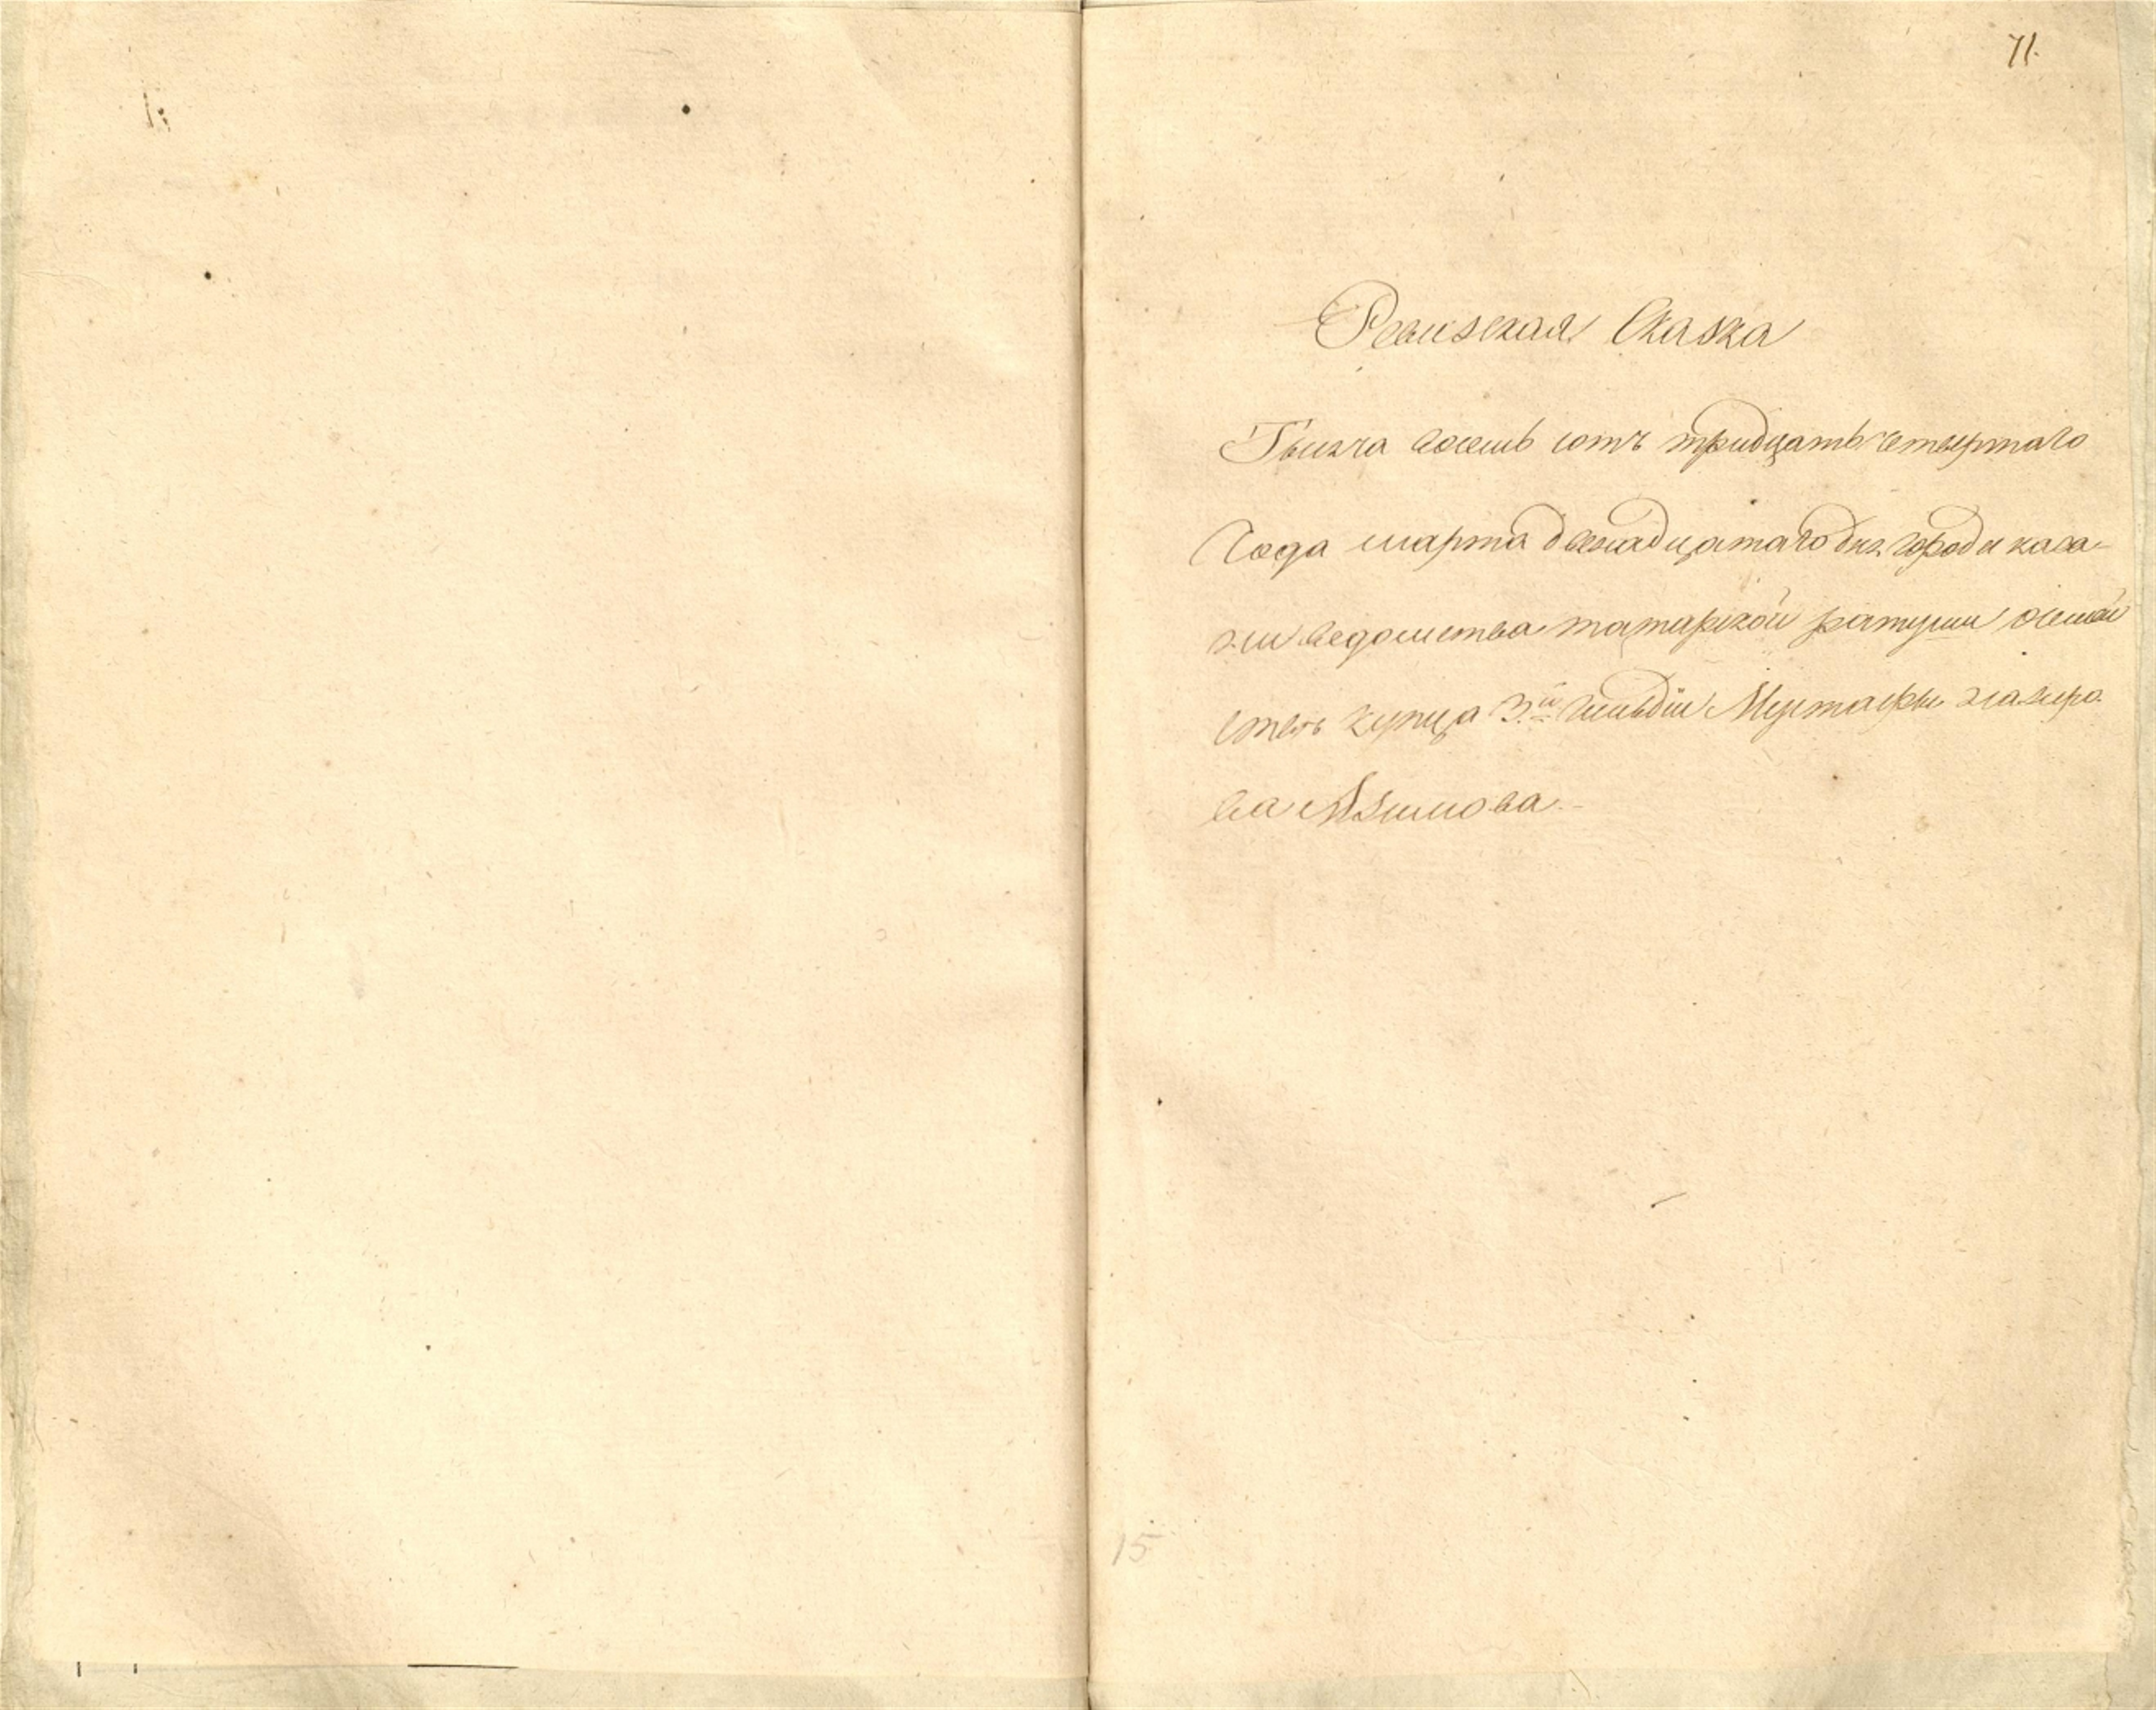 71.
Ревизская Сказка
Тысяча восемь сотъ тридцать четвертаго
Года марта двенадцатаго дня города каза-
ни ведомства татарской ратуши о семей
стве купца 3.й Гильдіи Мустафы
ва Азимова.-
15